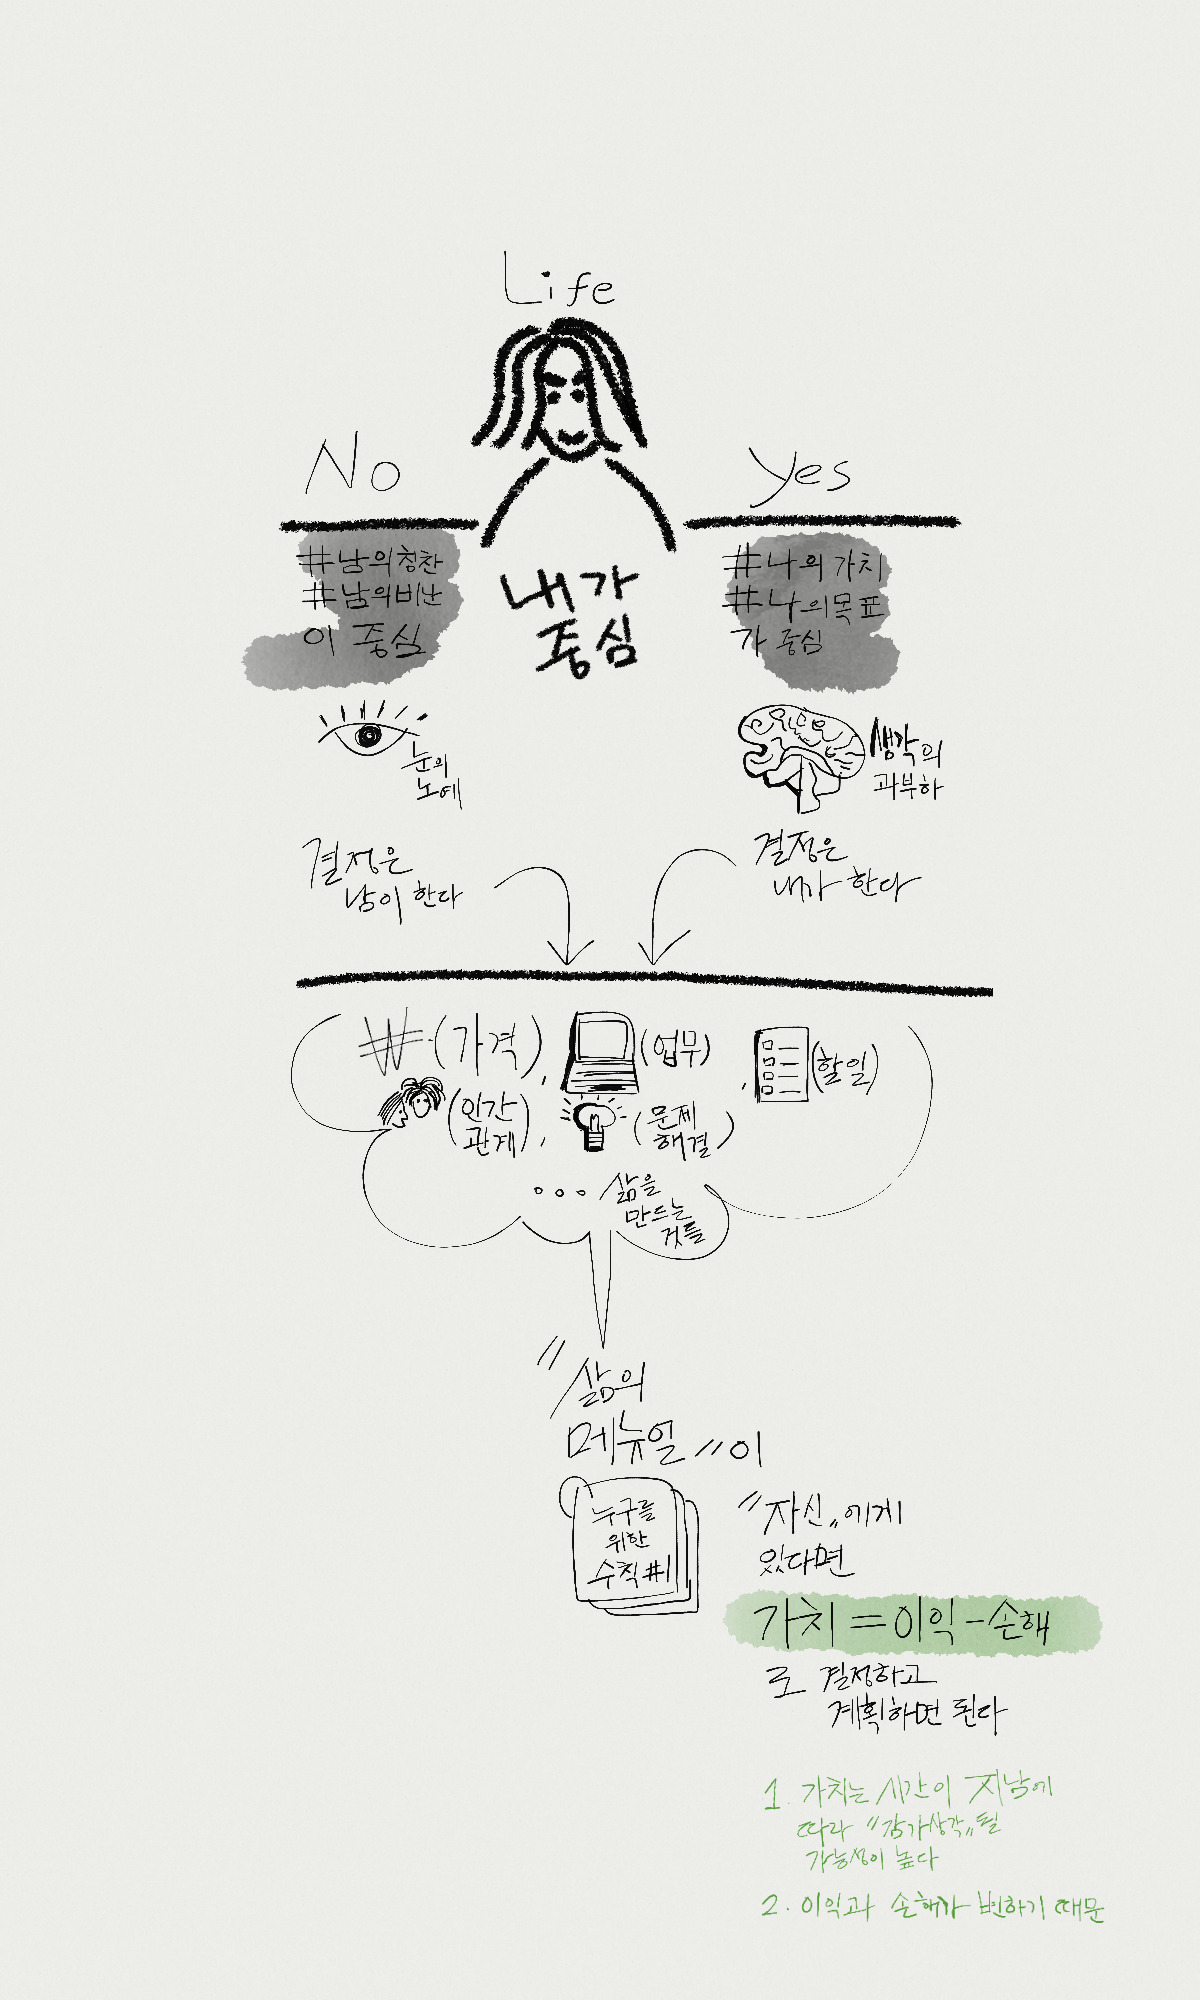 Life
No
Yes
#남의 칭찬
#남의 비난
이 중심
내가
중심
#나의 가치
#나의 목표
가 중심
눈의
노예
생각의
과부하
결정은
남이 한다
결정은
내가 한다
₩(가격),
(업무),
(할일)
(인간
관계),
(문제
해결)
... 삶을
만드는
것들
"삶의
메뉴얼"이
누구를
위한
수칙#1
"자신"에게
있다면
가치=이익-손해
로 결정하고
계획하면 된다
1. 가치는 시간이 지남에
따라 "감가상각"될
가능성이 높다
2. 이익과 손해가 변하기 때문